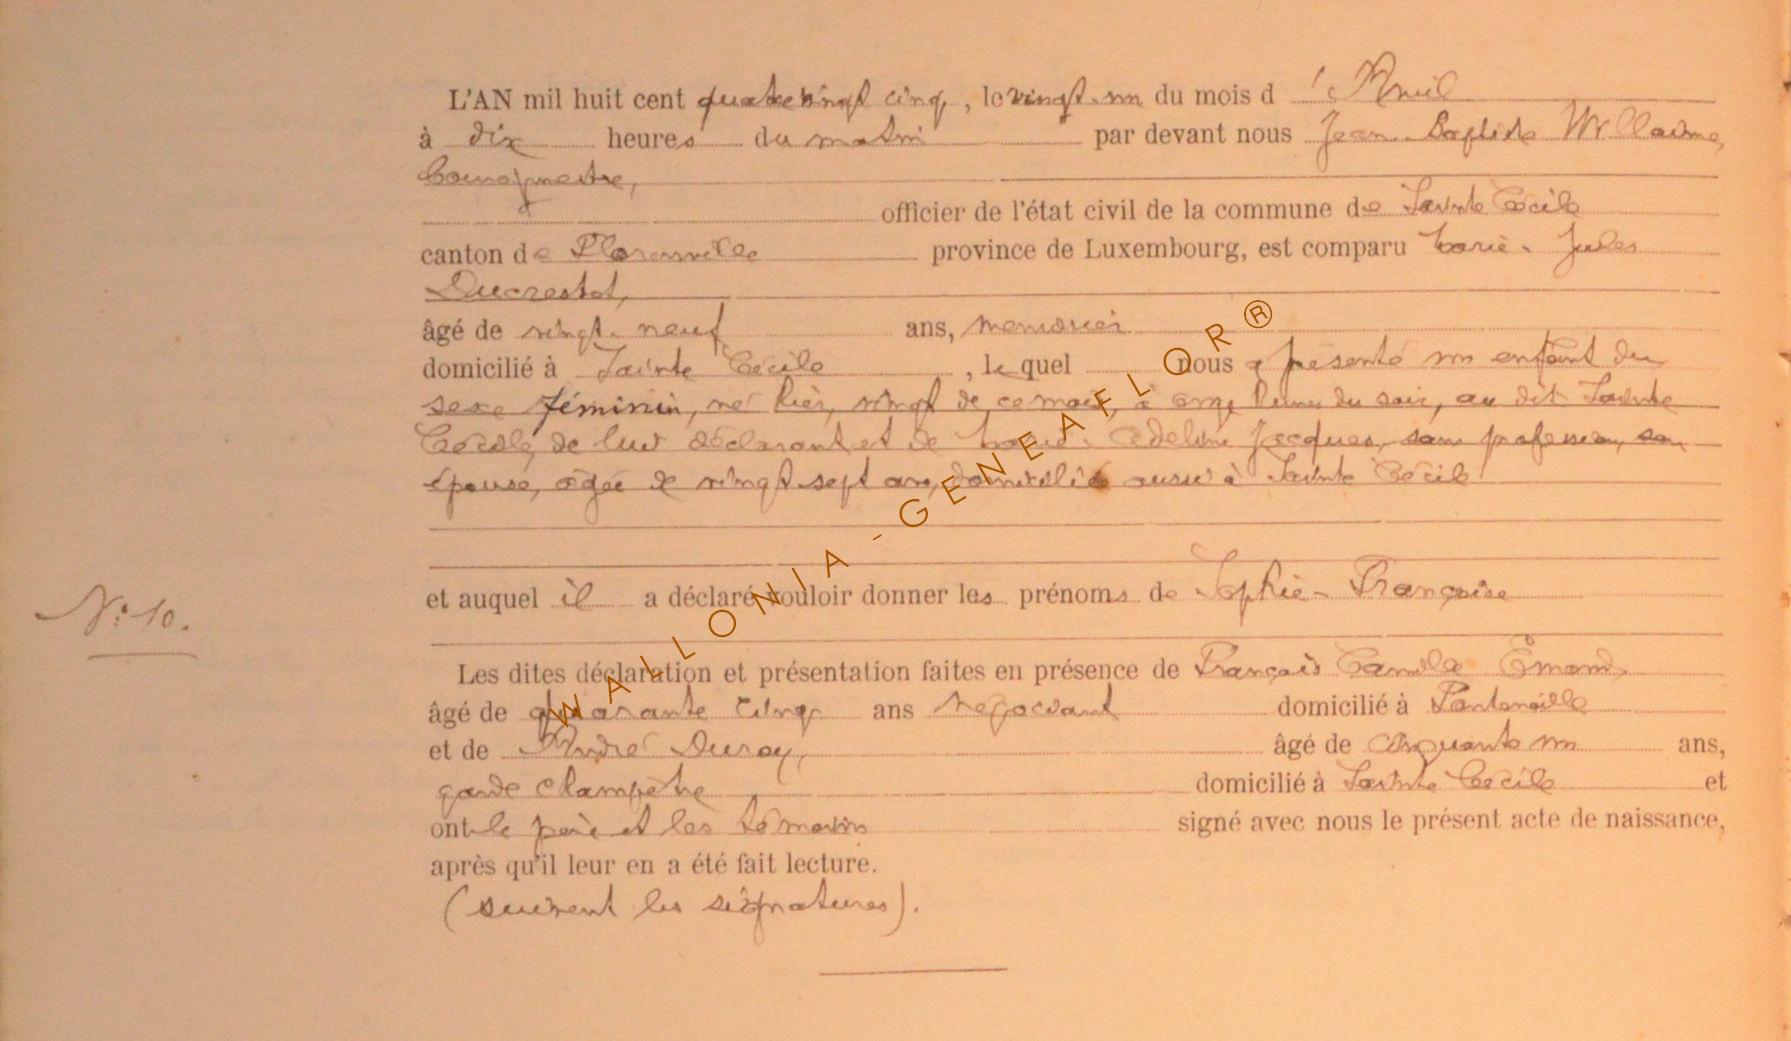 L'AN mil huit cent quatre vingt cinq, le vingt-un du mois d'Avril
à dix heures du matin par devant nous Jean-Baptiste Willaime,
bourgmestre,
officier de l'état civil de la commune de Sainte Cécile
canton de Florenville province de Luxembourg, est comparu Marie-Jules
Ducrestot,
âgé de vingt-neuf ans, menuisier
domicilié à Sainte Cécile, lequel nous a présenté un enfant du
sexe féminin, né hier, vingt de ce mois, à onze heures du soir, au dit Sainte
Cécile, de lui déclarant et de Marie-Adeline Jacques, sans profession, son
épouse, agée de vingt-sept ans, domiciliée aussi à Sainte Cécile
et auquel il a déclaré vouloir donner les prénoms de Sophie-Françoise
N° 10.
Les dites déclaration et présentation faites en présence de François Camille Emond,
âgé de quarante cinq ans négociant domicilié à Fontenoille
et de André Duroy, âgé de cinquante un ans,
garde champêtre domicilié à Sainte Cécile et
ont le père et les témoins signé avec nous le présent acte de naissance,
après qu'il leur en a été fait lecture.
(suivent les signatures).
WALLONIA - GENEAFLOR ®